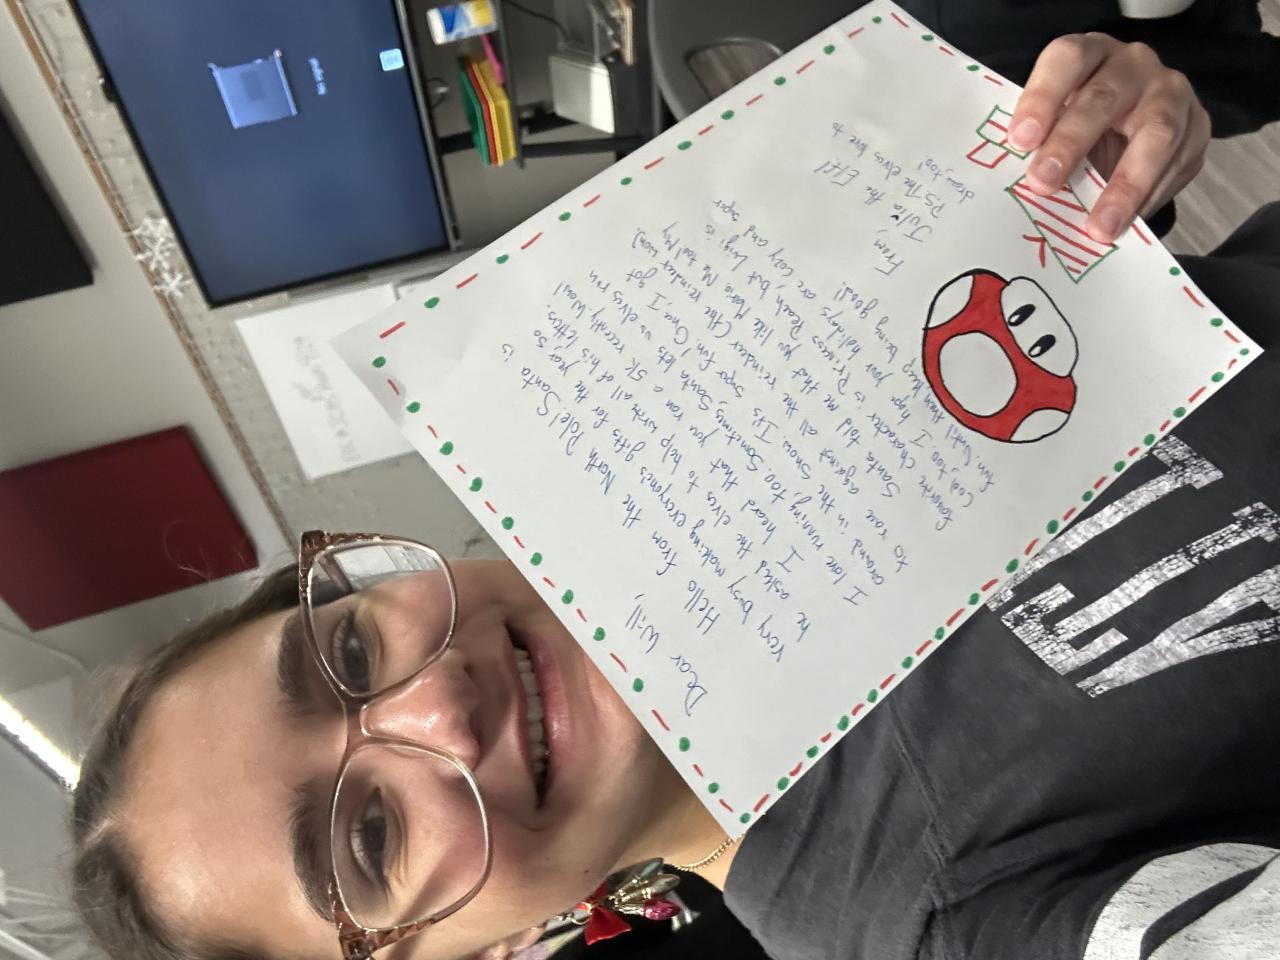 Dear Will,
Hello from the North Pole! Santa is
very busy making everyone's gifts for the year, so
he asked the elves to help write all of his letters.
I heard that you ran a 5k recently. Wow!
I love running, too. Sometimes, Santa lets us elves run
around in the snow. It's super fun! One I got
to race against all the reindeer (the reindeer won).
Santa told me that you like Mario. Me too! My
favorite character is Princess Peach, but Luigi is
cool, too. I hope your holidays are cozy and super
fun. Until then keep being good!
From,
Julia the Elf!
P.S. The elves love to
draw, too!